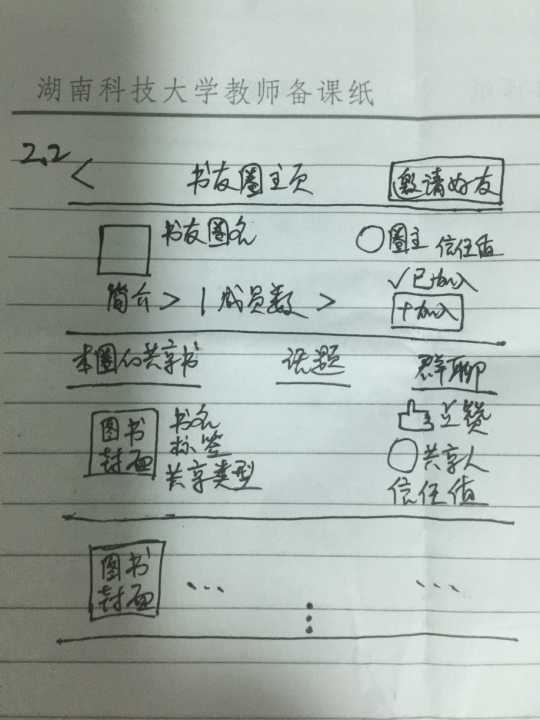 湖南科技大学教师备课纸
2.2 < 书友圈主页 邀请好友
书友圈名 圈主 信任值
✓已加入
简介 > | 成员数 > +加入
本圈的共享书 话题 群聊
图书封面 书名 点赞
标签
共享类型 共享人
信任值
图书封面 ... ...
⋮